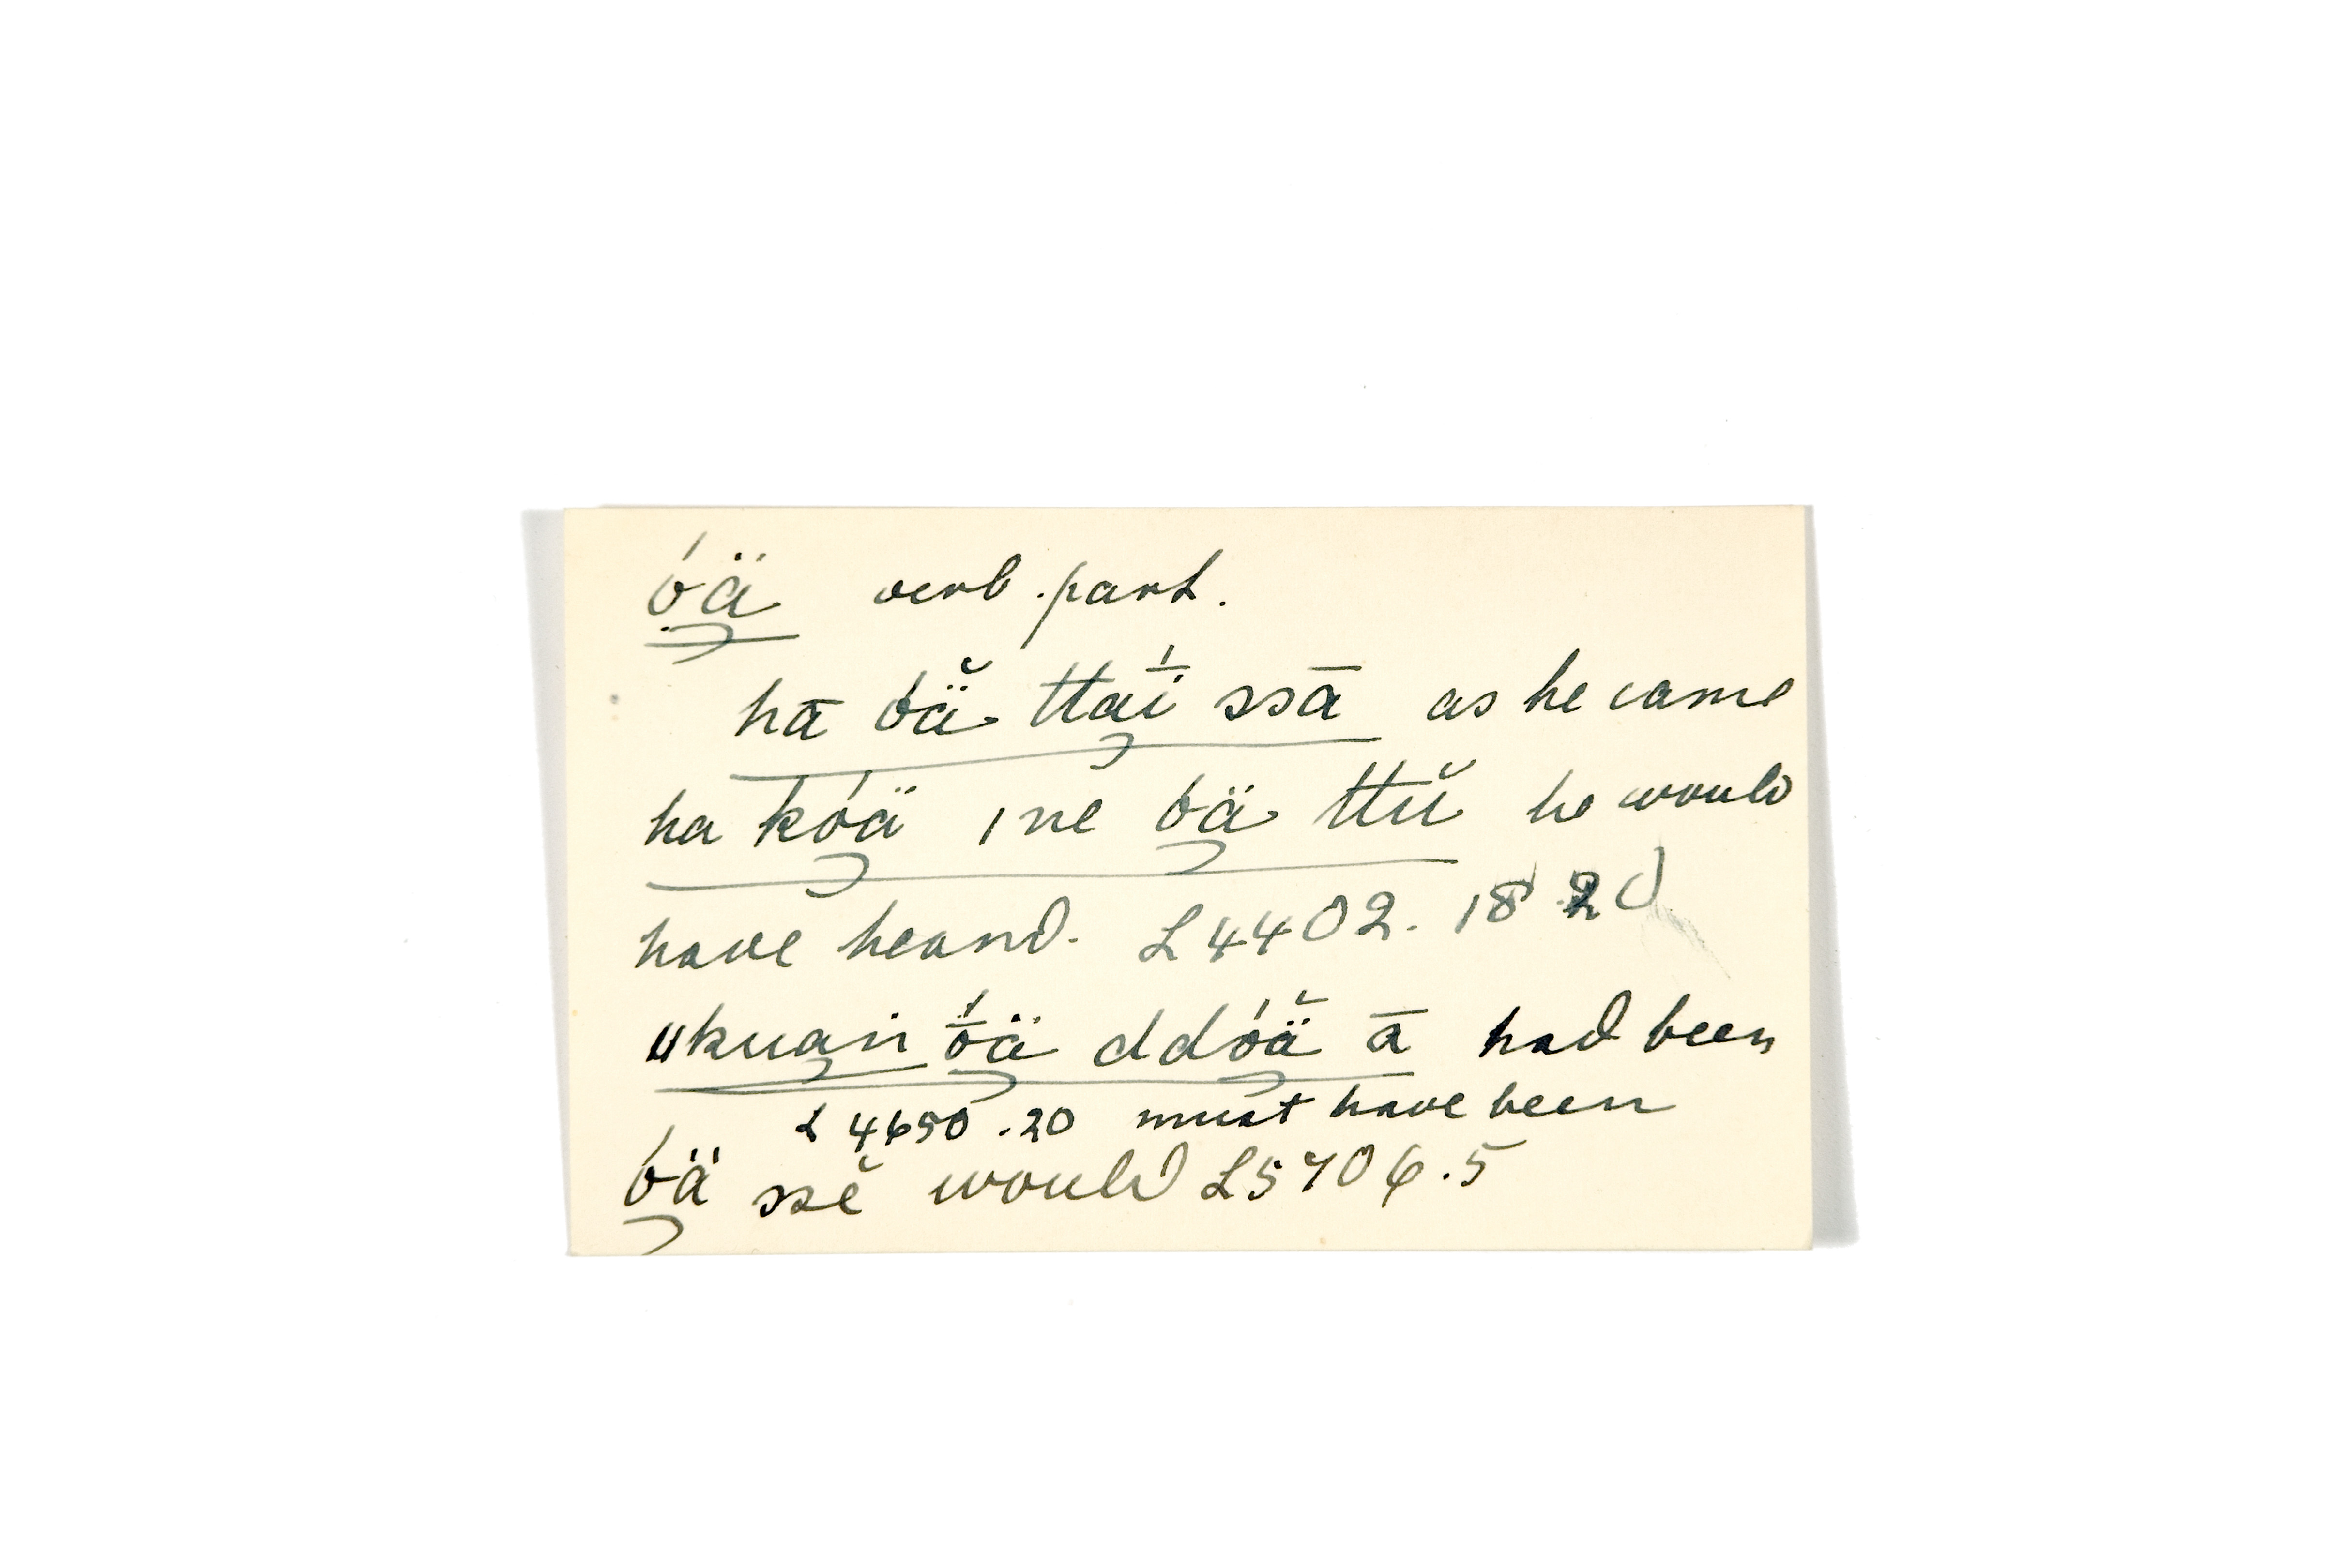 óä verb. part.
hā óä̆ ttaī́ ssā as he came
ha kóä ıne óä ttŭ he would
have heard. L4402. 18 20
ukuain ṓä ddóä̆ ā had been
L4650.20 must have been
óä ssĕ would L5706.5